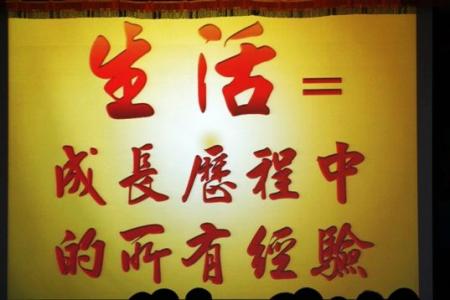 生活=
成長歷程中
的所有經驗